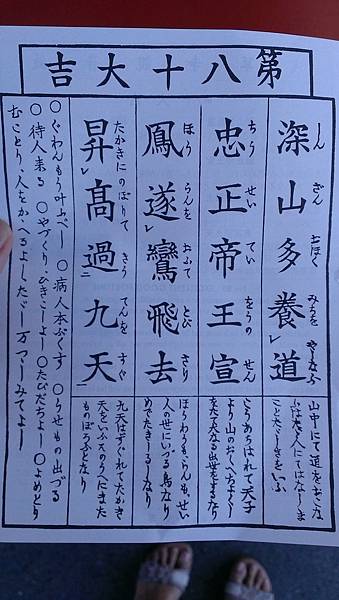 第八十大吉
深山多養道
しん ざん おほく みちを やしなふ
山中にて道をおこな
人にてはなし
ことたつときをいふ
忠正帝王宣
ちう せい てい をうの せん
あらはれて天子
より山のおくへちよくし
出世をするなり
鳳遂鸞飛去
ほう らんを おふて とび さり
ほうわうもらんも、せい
人の世にいづる鳥なり
めでたきしるしなり
昇高過九天
たかきにのぼりて きう てんを すぐ
九天はすぐれてたかき
天をいふそのうへにまた
〇ぐわんもう叶ふべし 〇病人本ぷくす 〇うせもの出づる
〇待人来る 〇やづくり、ひきこしよし 〇たびだちよし 〇よめとり
むことり、人をかへるよしたゞし万つゝしみてよし